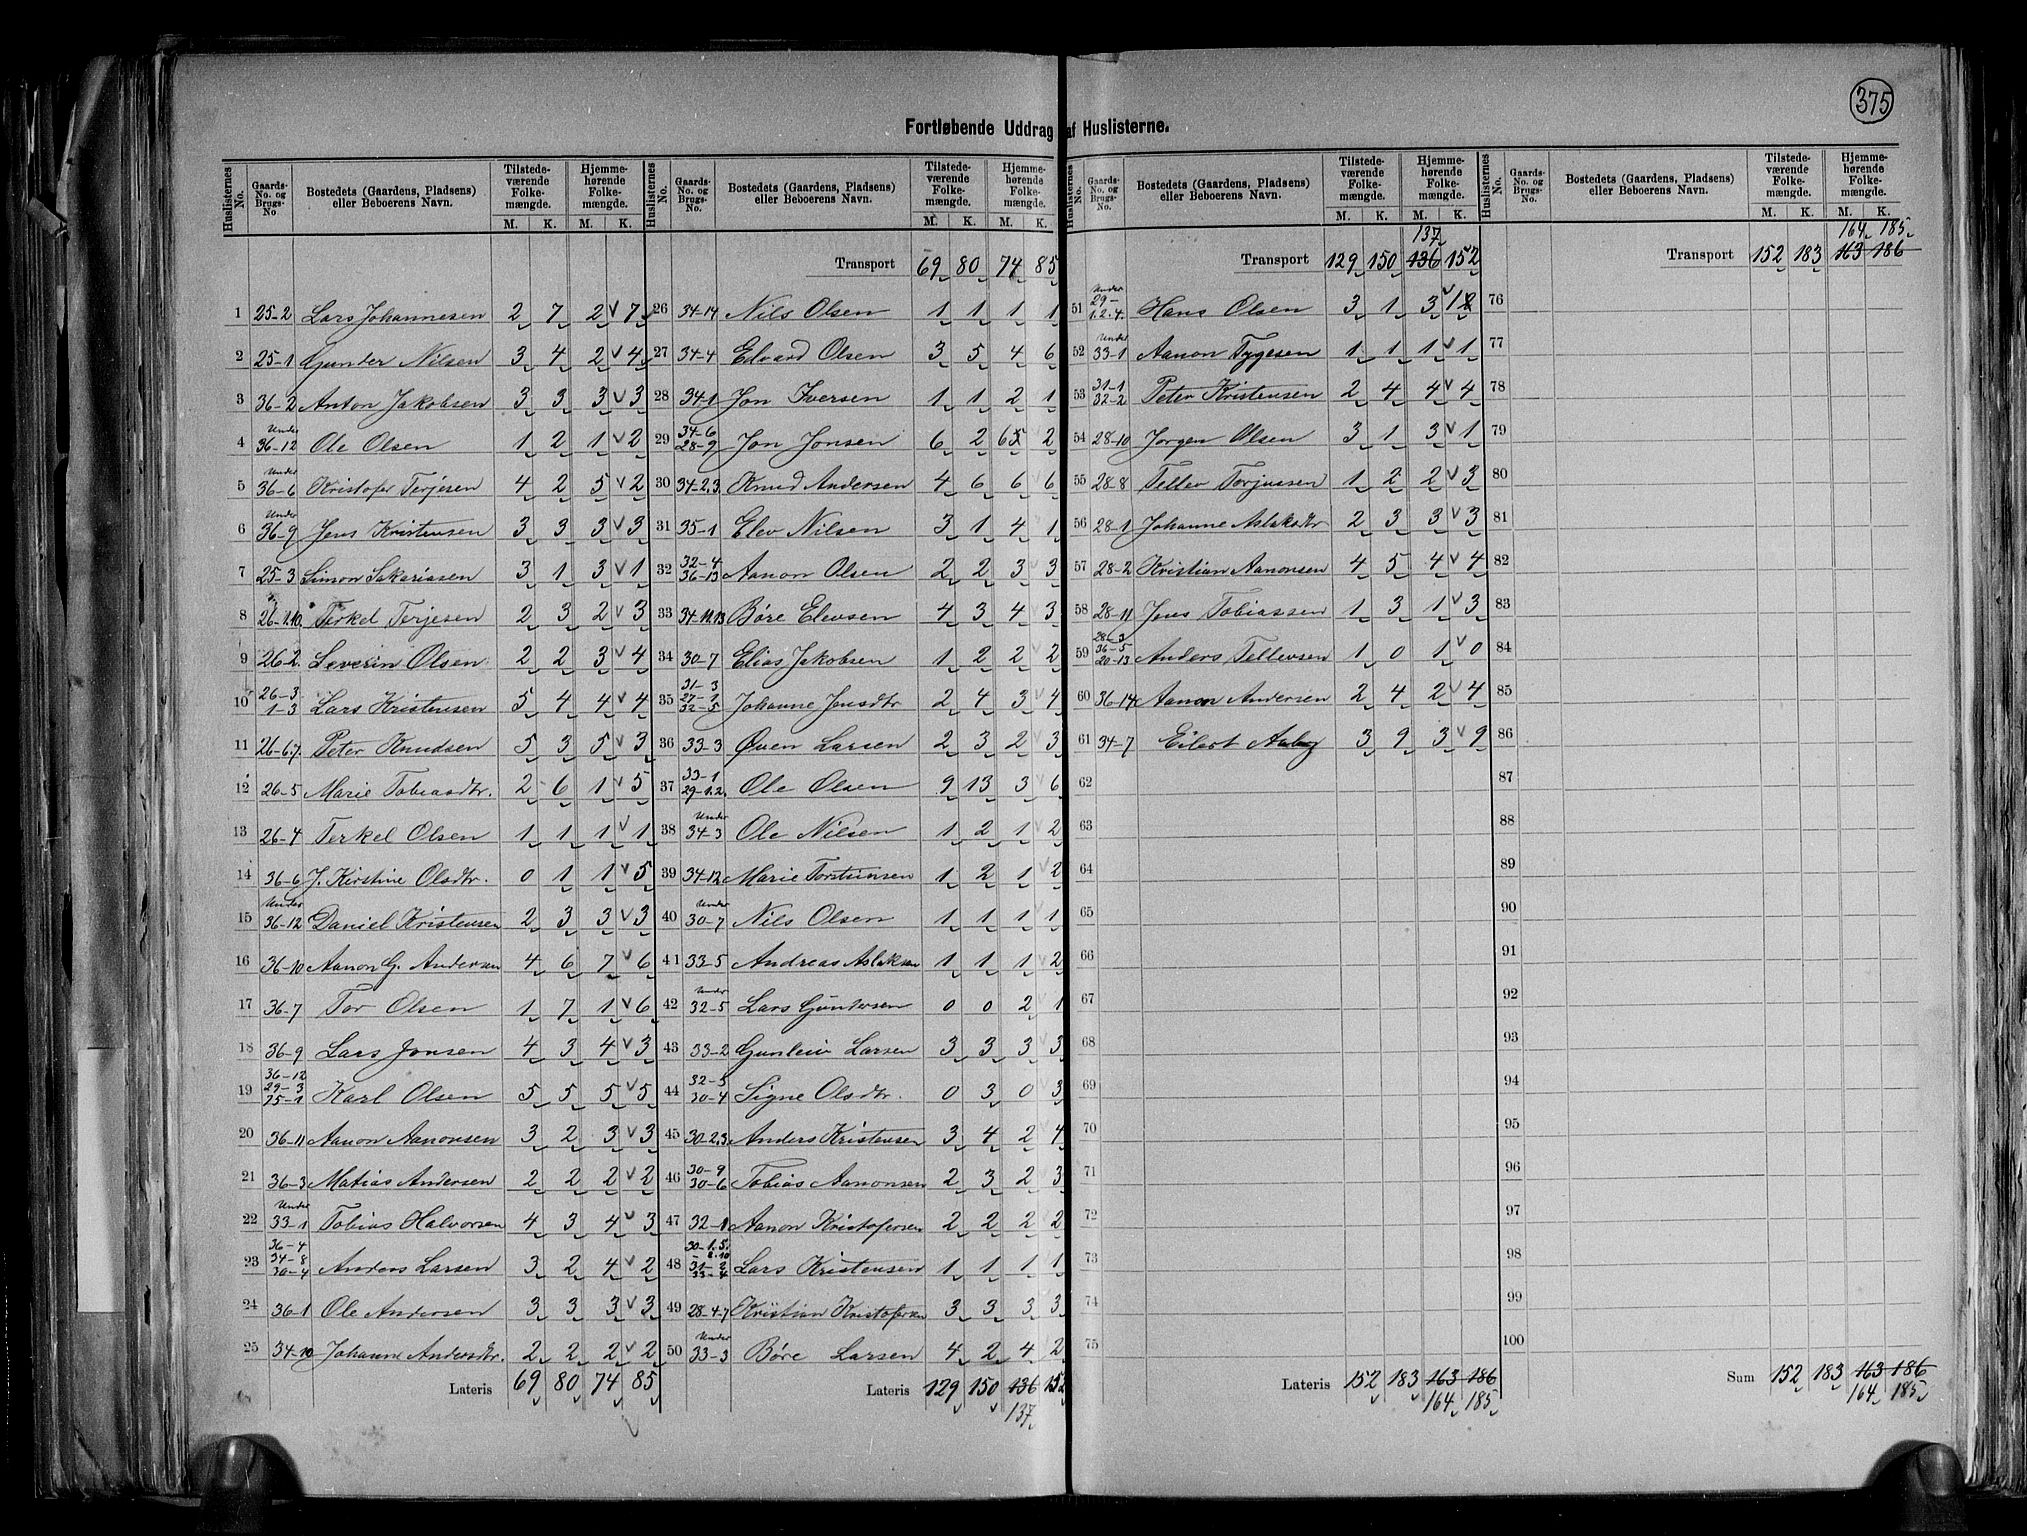 375
Fortløbende Uddrag af Huslisterne.
Huslisternes No. | Gaards-No. og Brugs-No | Bostedets (Gaardens, Pladsens) eller Beboerens Navn. | Tilstedeværende Folkemængde. M. K. | Hjemmehørende Folkemængde. M. K.
1 25-2 Lars Johannesen 2 7 2 7
2 25-1 Gunder Nilsen 3 4 2 4
3 36-2 Anton Jakobsen 3 3 3 3
4 Under 36-12 Ole Olsen 1 2 1 2
5 Under 36-6 Kristofer Terjesen 4 2 5 2
6 Under 36-9 Jens Kristensen 3 3 3 3
7 25-3 Simon Sakariassen 3 1 3 1
8 26-1.10. Terkel Terjesen 2 3 2 3
9 26-2. Severin Olsen 2 2 3 4
10 26-3 1-3 Lars Kristensen 5 4 4 4
11 26-6.7. Peter Knudsen 5 3 5 3
12 26-5 Marie Tobiasdtr. 2 6 1 5
13 26-4 Terkel Olsen 1 1 1 1
14 36-6 J. Kirstine Olsdtr. 0 1 1 5
15 Under 36-12 Daniel Kristensen 2 3 3 3
16 36-10 Aanon G. Andersen 4 6 7 6
17 36-7 Tor Olsen 1 7 1 6
18 36-9 Lars Jonsen 4 3 4 3
19 36-12 29-3 25-1 Karl Olsen 5 5 5 5
20 36-11 Aanon Aanonsen 3 2 3 3
21 36-3 Matias Andersen 2 2 2 2
22 Under 33-1 Tobias Halvorsen 4 3 4 3
23 36-4 34-8 30-4 Anders Larsen 3 2 4 2
24 36-1 Ole Andersen 3 3 3 3
25 34-10 Johanne Andersdtr. 2 2 2 2
Lateris 69 80 74 85
Huslisternes No. | Gaards-No. og Brugs-No. | Bostedets (Gaardens, Pladsens) eller Beboerens Navn. | Tilstedeværende Folkemængde. M. K. | Hjemmehørende Folkemængde. M. K.
Transport 69 80 74 85
26 34-14 Nils Olsen 1 1 1 1
27 34-4 Edvard Olsen 3 5 4 6
28 34-1 Jon Iversen 1 1 2 1
29 34-6 28-9 Jon Jonsen 6 2 6 2
30 34-2.3. Knud Andersen 4 6 6 6
31 35-1 Elev Nilsen 3 1 4 1
32 32-4 36-13 Aanon Olsen 2 2 3 3
33 34-11.13 Børe Elevsen 4 3 4 3
34 30-7 Elias Jakobsen 1 2 2 2
35 31-3 27-2 32-5 Johanne Jensdtr 2 4 3 4
36 33-3 Øven Larsen 2 3 2 3
37 33-1 29-1.2. Ole Olsen 9 13 3 6
38 Under 34-3 Ole Nilsen 1 2 1 2
39 34-12 Marie Torsteinsen 1 2 1 2
40 Under 30-7 Nils Olsen 1 1 1 1
41 33-5 Andreas Aslaksen 1 1 1 2
42 Under 32-5 Lars Gundersen 0 0 2 1
43 33-2 Gunleiv Larsen 3 3 3 3
44 32-3 30-4 Signe Olsdtr. 0 3 0 3
45 30-2.3. Anders Kristensen 3 4 2 4
46 30-9 30-6 Tobias Aanonsen 2 3 2 3
47 32-1 Aanon Kristofersen 2 2 2 2
48 30-1.5. 8.10 31-2 33-4 Lars Kristensen 1 1 1 1
49 28-4.7 Kristian Kristofersen 3 3 3 3
50 Under 33-3 Børe Larsen 4 2 4 2
Lateris 129 150 136 152
137
Huslisternes No. | Gaards-No. og Brugs-No. | Bostedets (Gaardens, Pladsens) eller Beboerens Navn. | Tilstedeværende Folkemængde. M. K. | Hjemmehørende Folkemængde. M. K.
137
Transport 129 150 136 152
51 Under 29-1.2.4. Hans Olsen 3 1 3 1
52 Under 33-1 Aanon Tygesen 1 1 1 1
53 31-1 32-2 Peter Kristensen 2 4 4 4
54 28-10 Jorgen Olsen 3 1 3 1
55 28-8 Tellev Torjussen 1 2 2 3
56 28-1 Johanne Aslaksdtr 2 3 3 3
57 28-2 Kristian Aanonsen 4 5 4 4
58 28-11 Jens Tobiassen 1 3 1 3
59 28-3 36-5 20-13 Anders Tellevsen 1 0 1 0
60 36-14 Aanon Andersen 2 4 2 4
61 34-7 Eilert Aaby 3 9 3 9
62
63
64
65
66
67
68
69
70
71
72
73
74
75
Lateris 152 183 163 186
164 185
Huslisternes No. | Gaards-No. og Brugs-No. | Bostedets (Gaardens, Pladsens) eller Beboerens Navn. | Tilstedeværende Folkemængde. M. K. | Hjemmehørende Folkemængde. M. K.
164 185
Transport 152 183 163 186
76
77
78
79
80
81
82
83
84
85
86
87
88
89
90
91
92
93
94
95
96
97
98
99
100
Sum 152 183 163 186
164 185